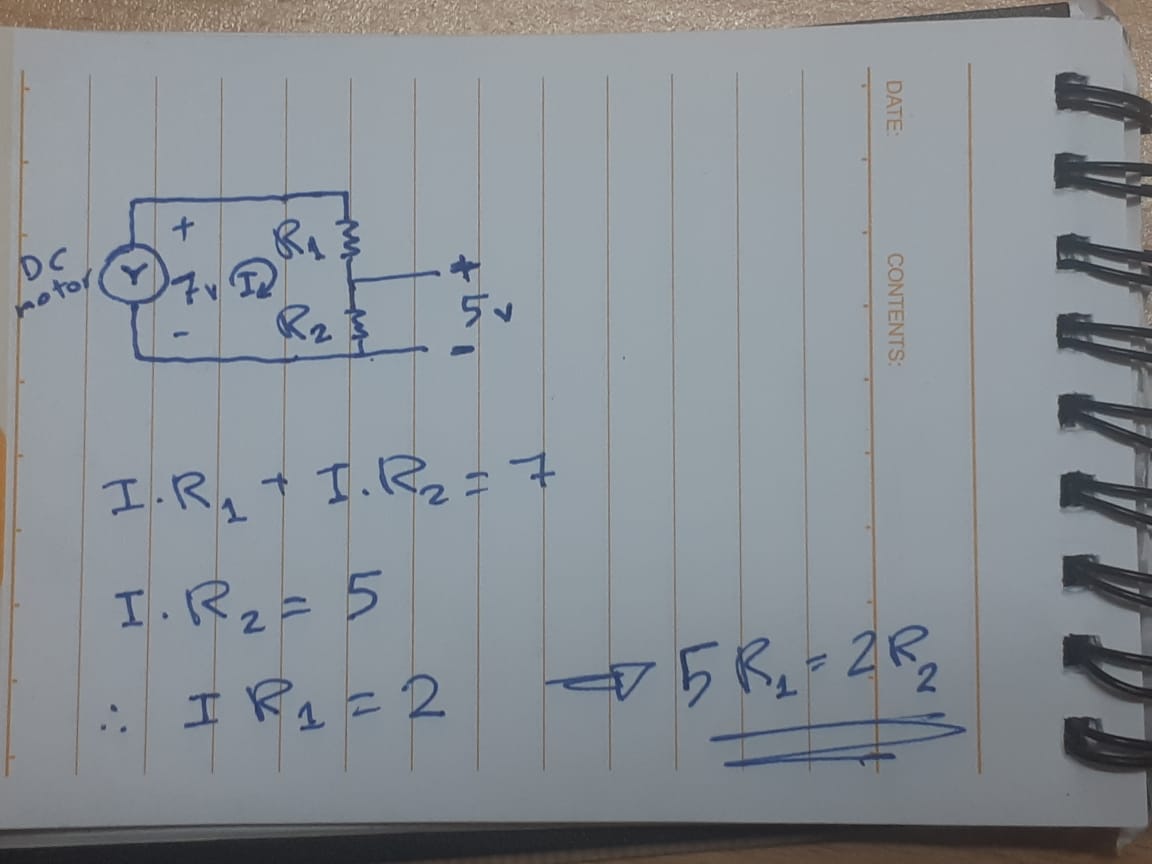 DATE:
CONTENTS:
DC
motor
+
7v
-
I
R1
R2
+
5v
-
I.R1 + I.R2 = 7
I.R2 = 5
∴ I R1 = 2 ⇒ 5 R1 = 2 R2